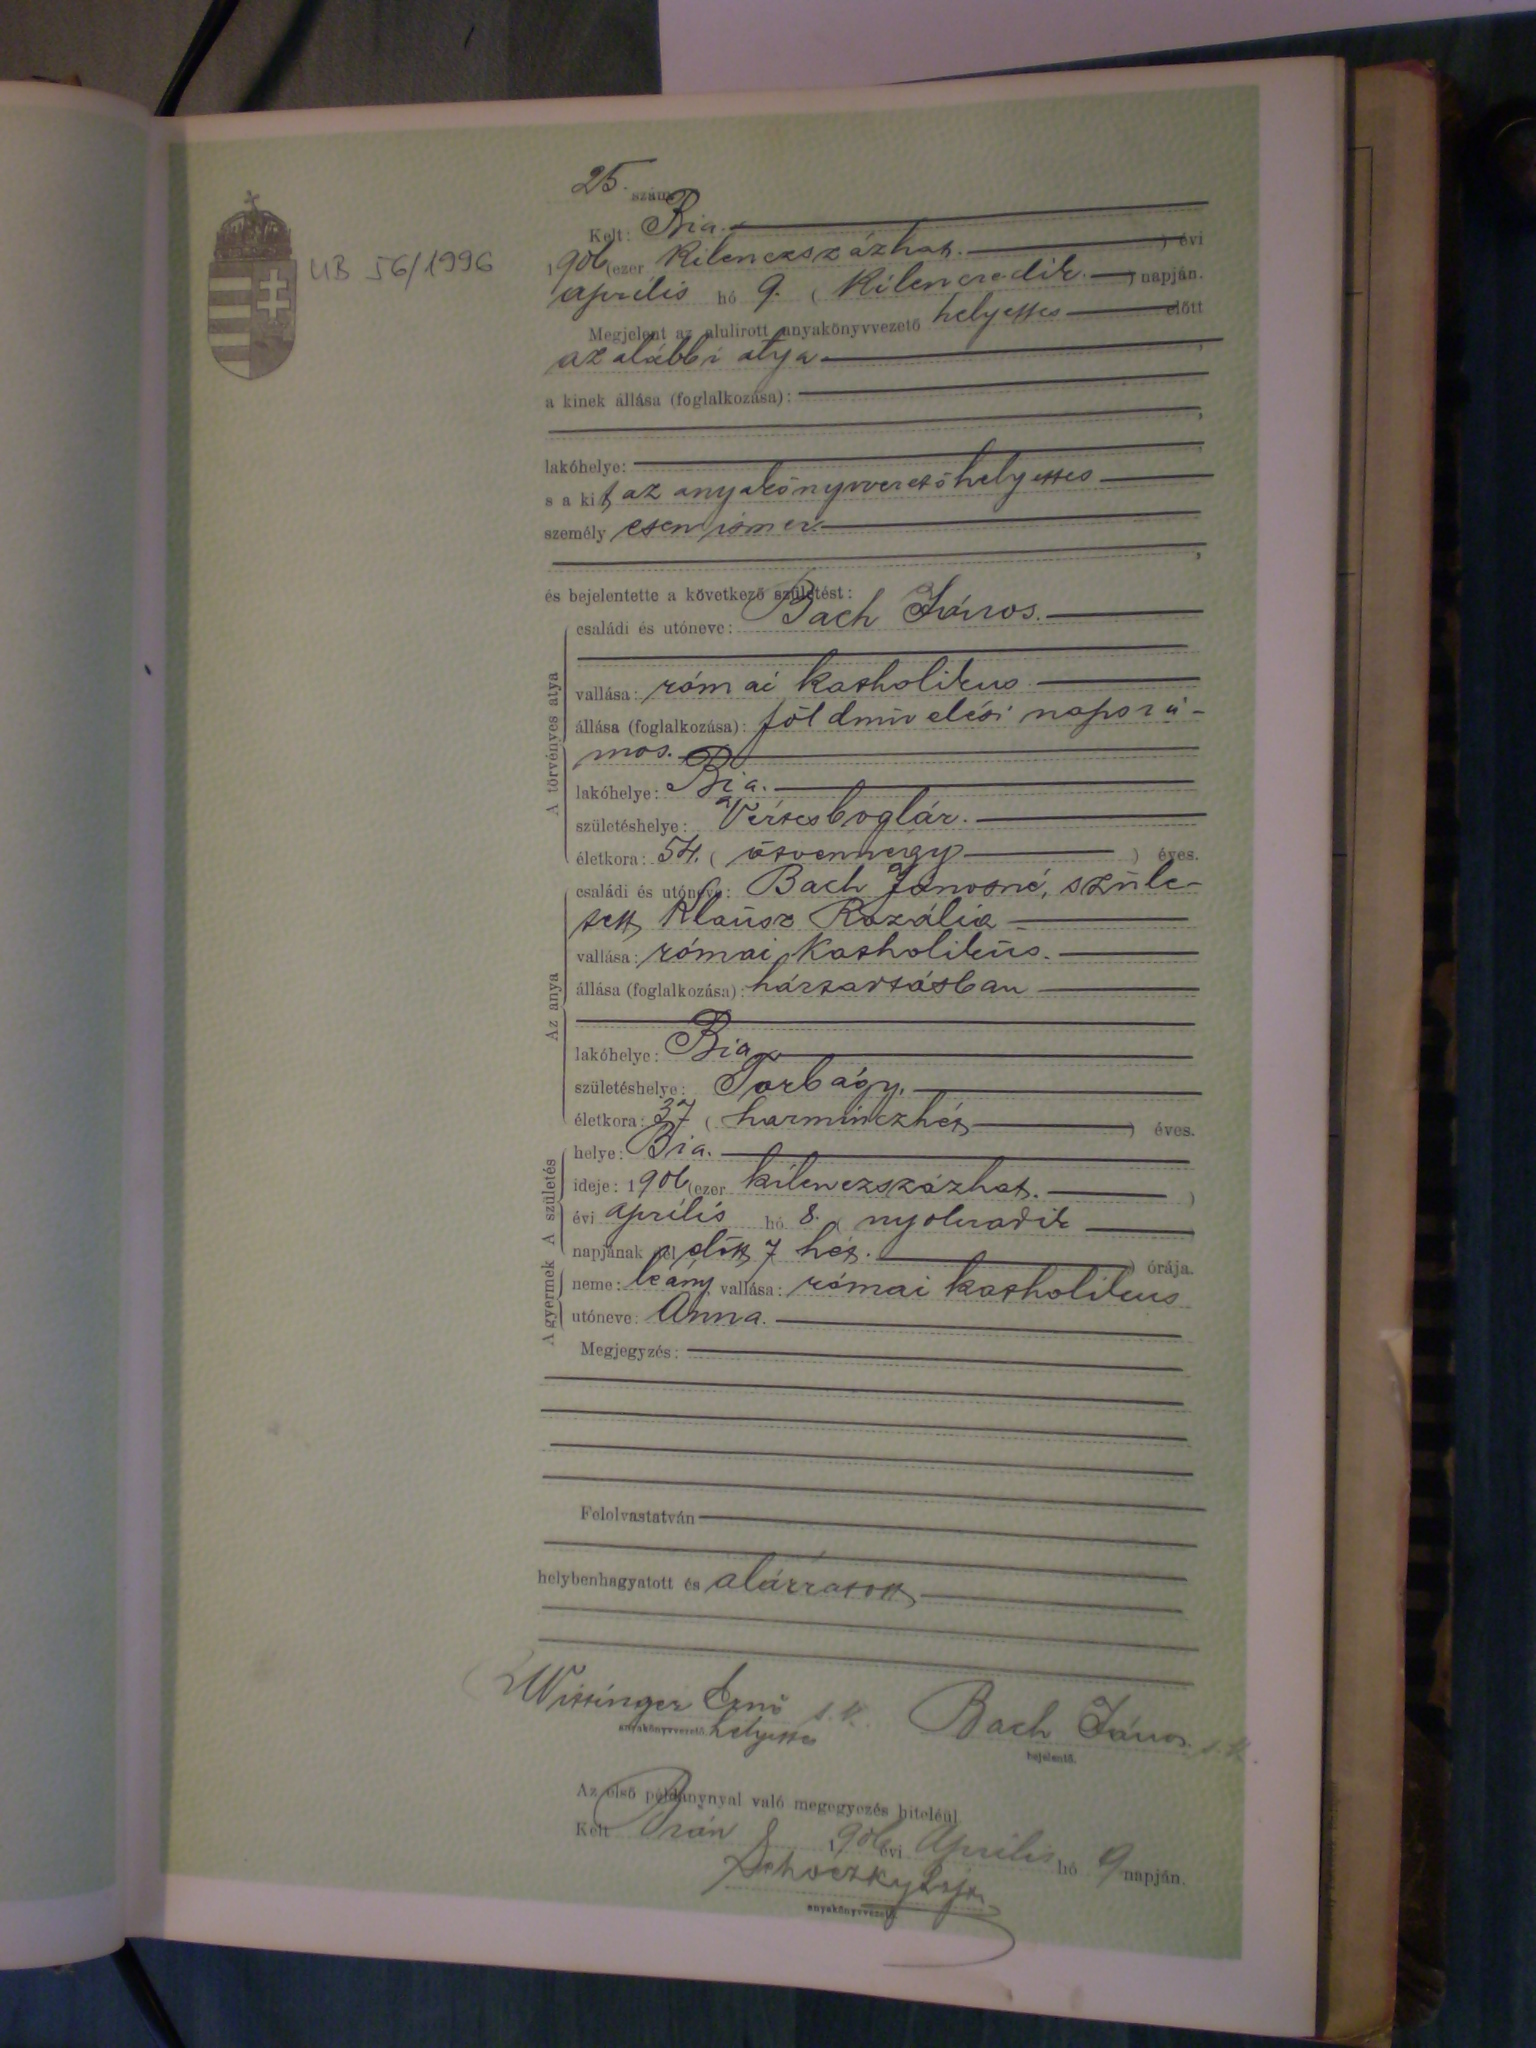 25. szám
UB 56/1996
Kelt: Bia.
1906 (ezer kilenczszázhat. ) évi
április hó 9. ( kilenczedik. ) napján.
Megjelent az alulirott anyakönyvvezető helyettes előtt
az alábbi atya ,
a kinek állása (foglalkozása):
,
lakóhelye: ,
s a kit az anyakönyvvezetőhelyettes
személyesen ismer.
,
és bejelentette a következő születést:
A törvényes atya
családi és utóneve: Bach János.
vallása: római katholikus
állása (foglalkozása): földmivelési napszá-
mos.
lakóhelye: Bia.
születéshelye: Vértesboglár.
életkora: 54. ( ötvennégy ) éves.
Az anya
családi és utóneve: Bach Jánosné, szüle-
tett Klausz Rozália
vallása: római katholikus.
állása (foglalkozása): háztartásban
lakóhelye: Bia
születéshelye: Torbágy.
életkora: 37 ( harminczhét ) éves.
A születés
helye: Bia.
ideje: 1906 (ezer kilenczszázhat. )
évi április hó 8. ( nyolczadik )
napjának dél előtt 7 hét. ) órája.
A gyermek
neme: leány, vallása: római katholikus
utóneve: Anna.
Megjegyzés:
Felolvastatván
helybenhagyatott és aláiratott
Wittinger Ernő s. k. Bach János. s. k.
anyakönyvvezető helyettes bejelentő.
Az első példánynyal való megegyezés hiteléül
Kelt 1906 évi április hó 9 napján.
anyakönyvvezető.